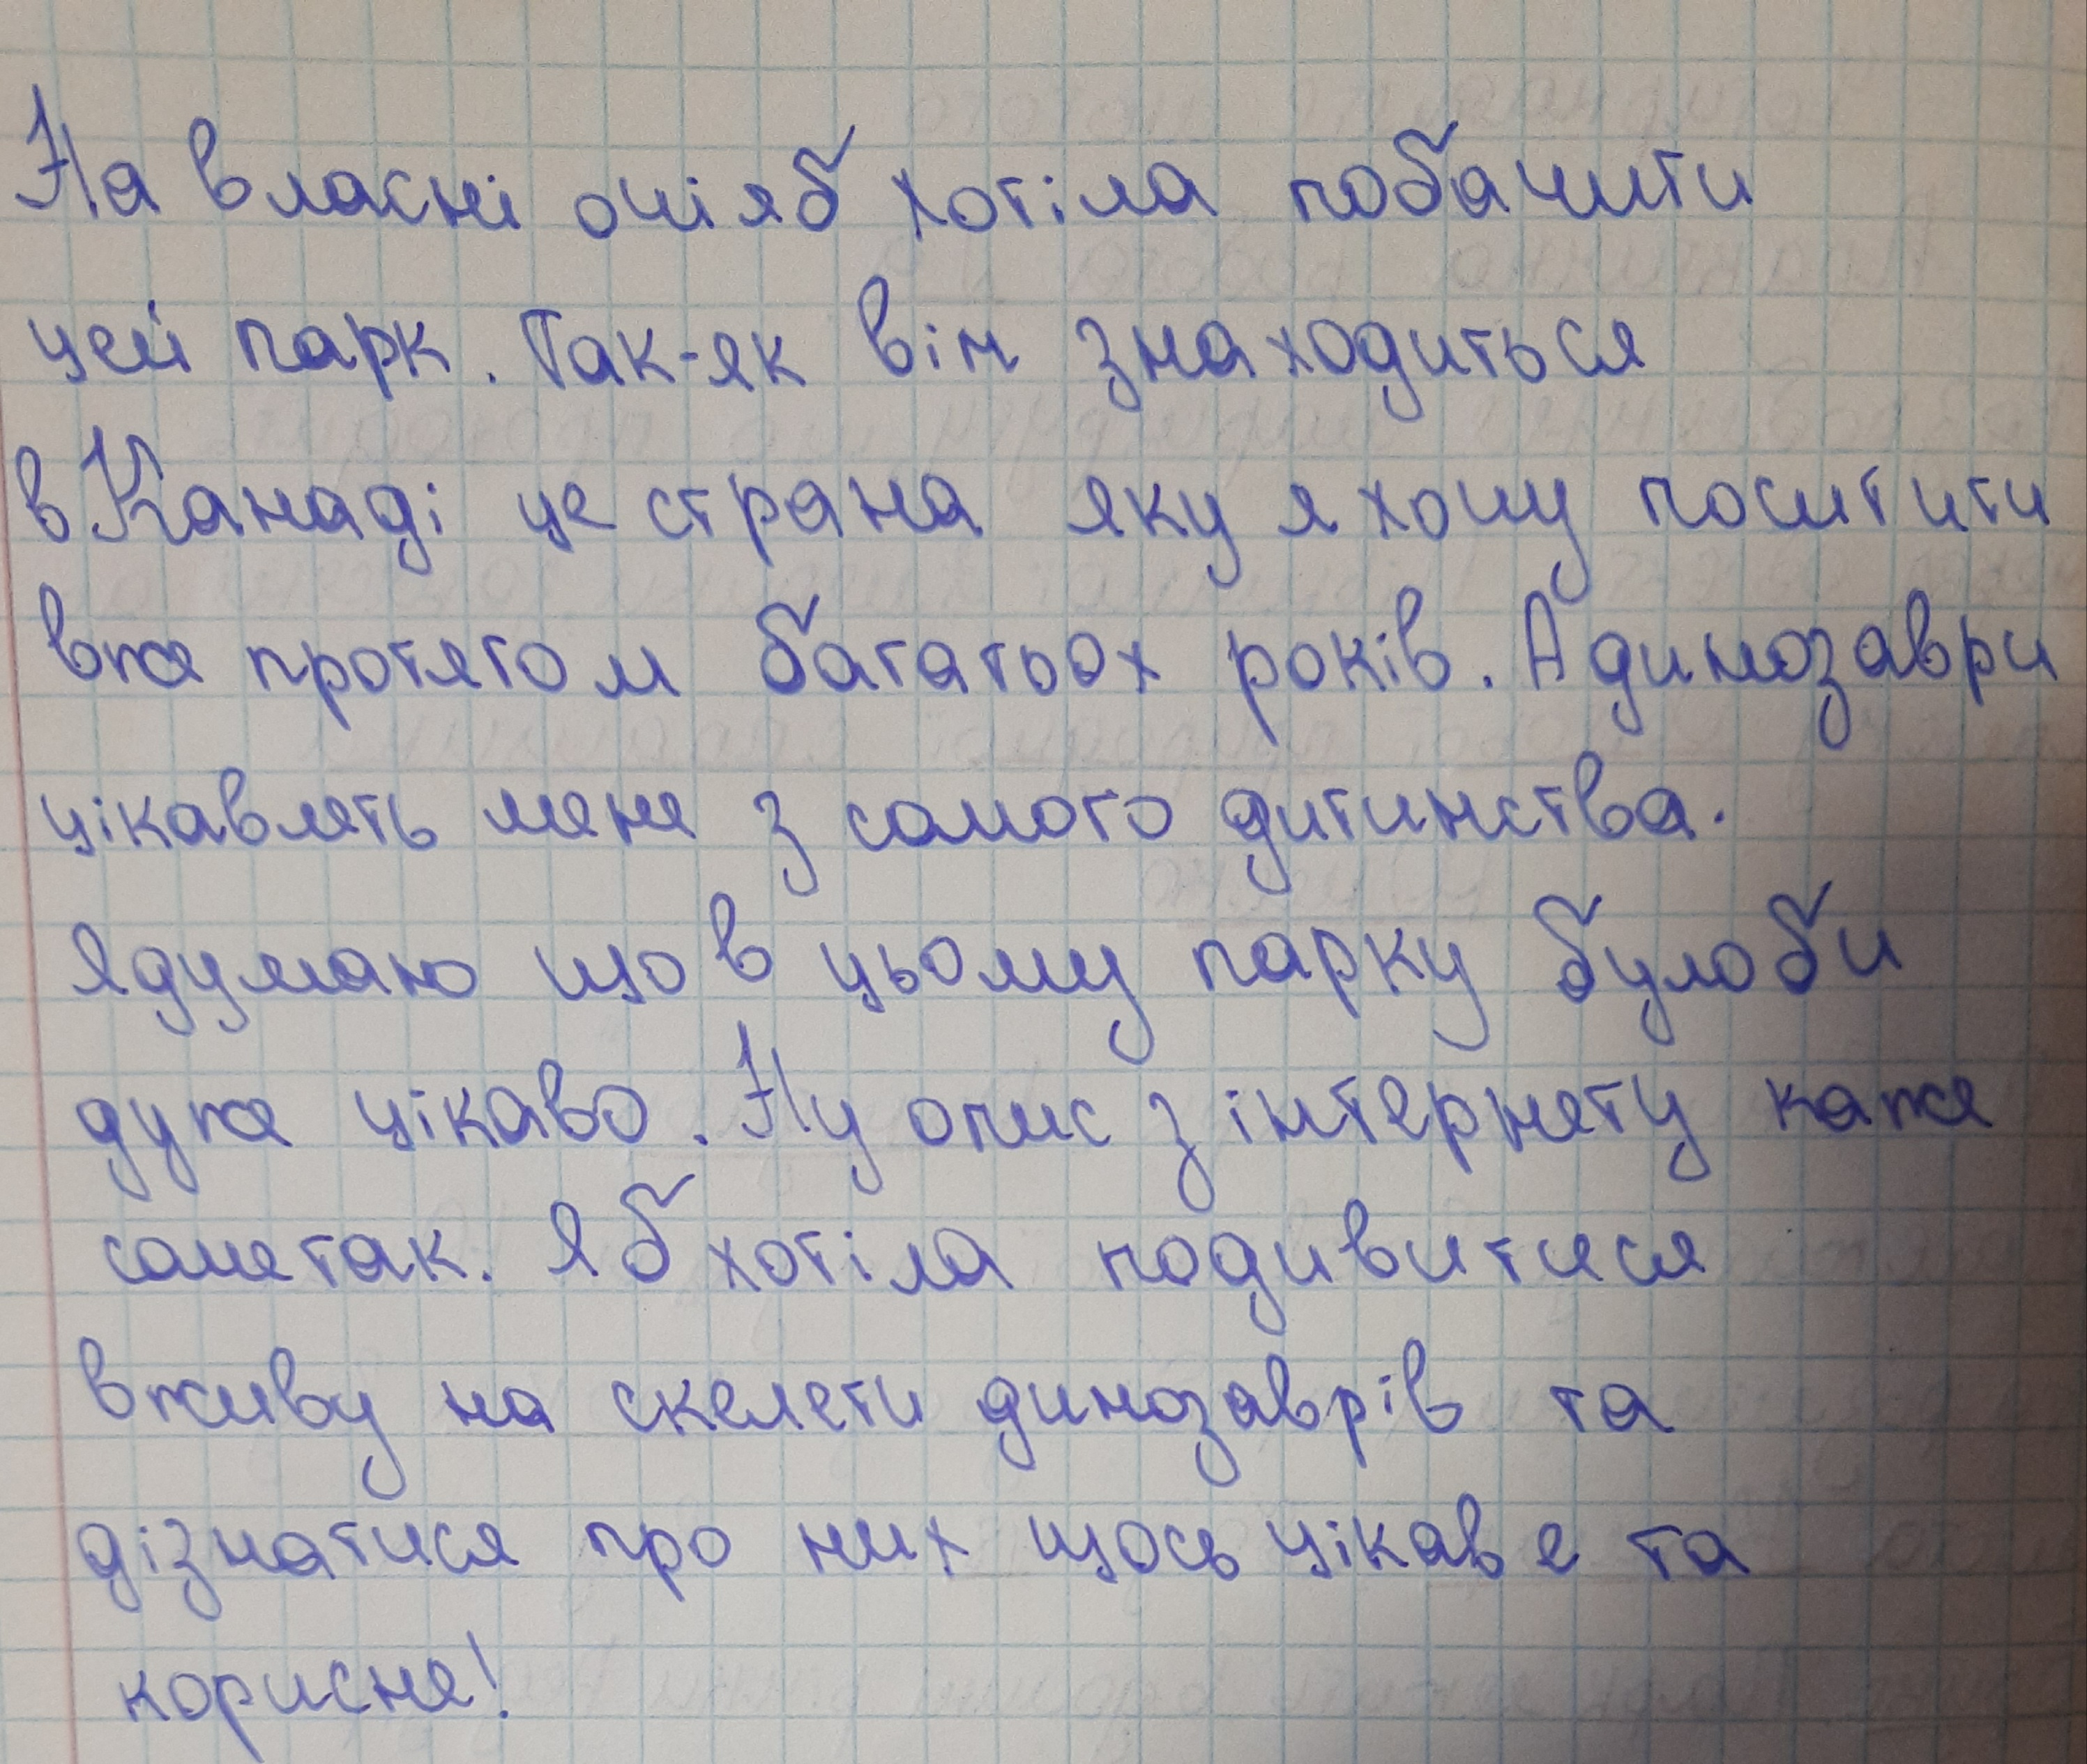 На власні очі я б хотіла побачити
цей парк. Так-як він знаходиться
в Канаді це страна яку я хочу поситити
вже протягом багатьох років. А динозаври
цікавлять мене з самого дитинства.
Я думаю що в цьому парку було би
дуже цікаво. Ну опис з інтернету каже
саме так. Я б хотіла подивитися
вживу на скелети динозаврів та
дізнатися про них щось цікаве та
корисне!